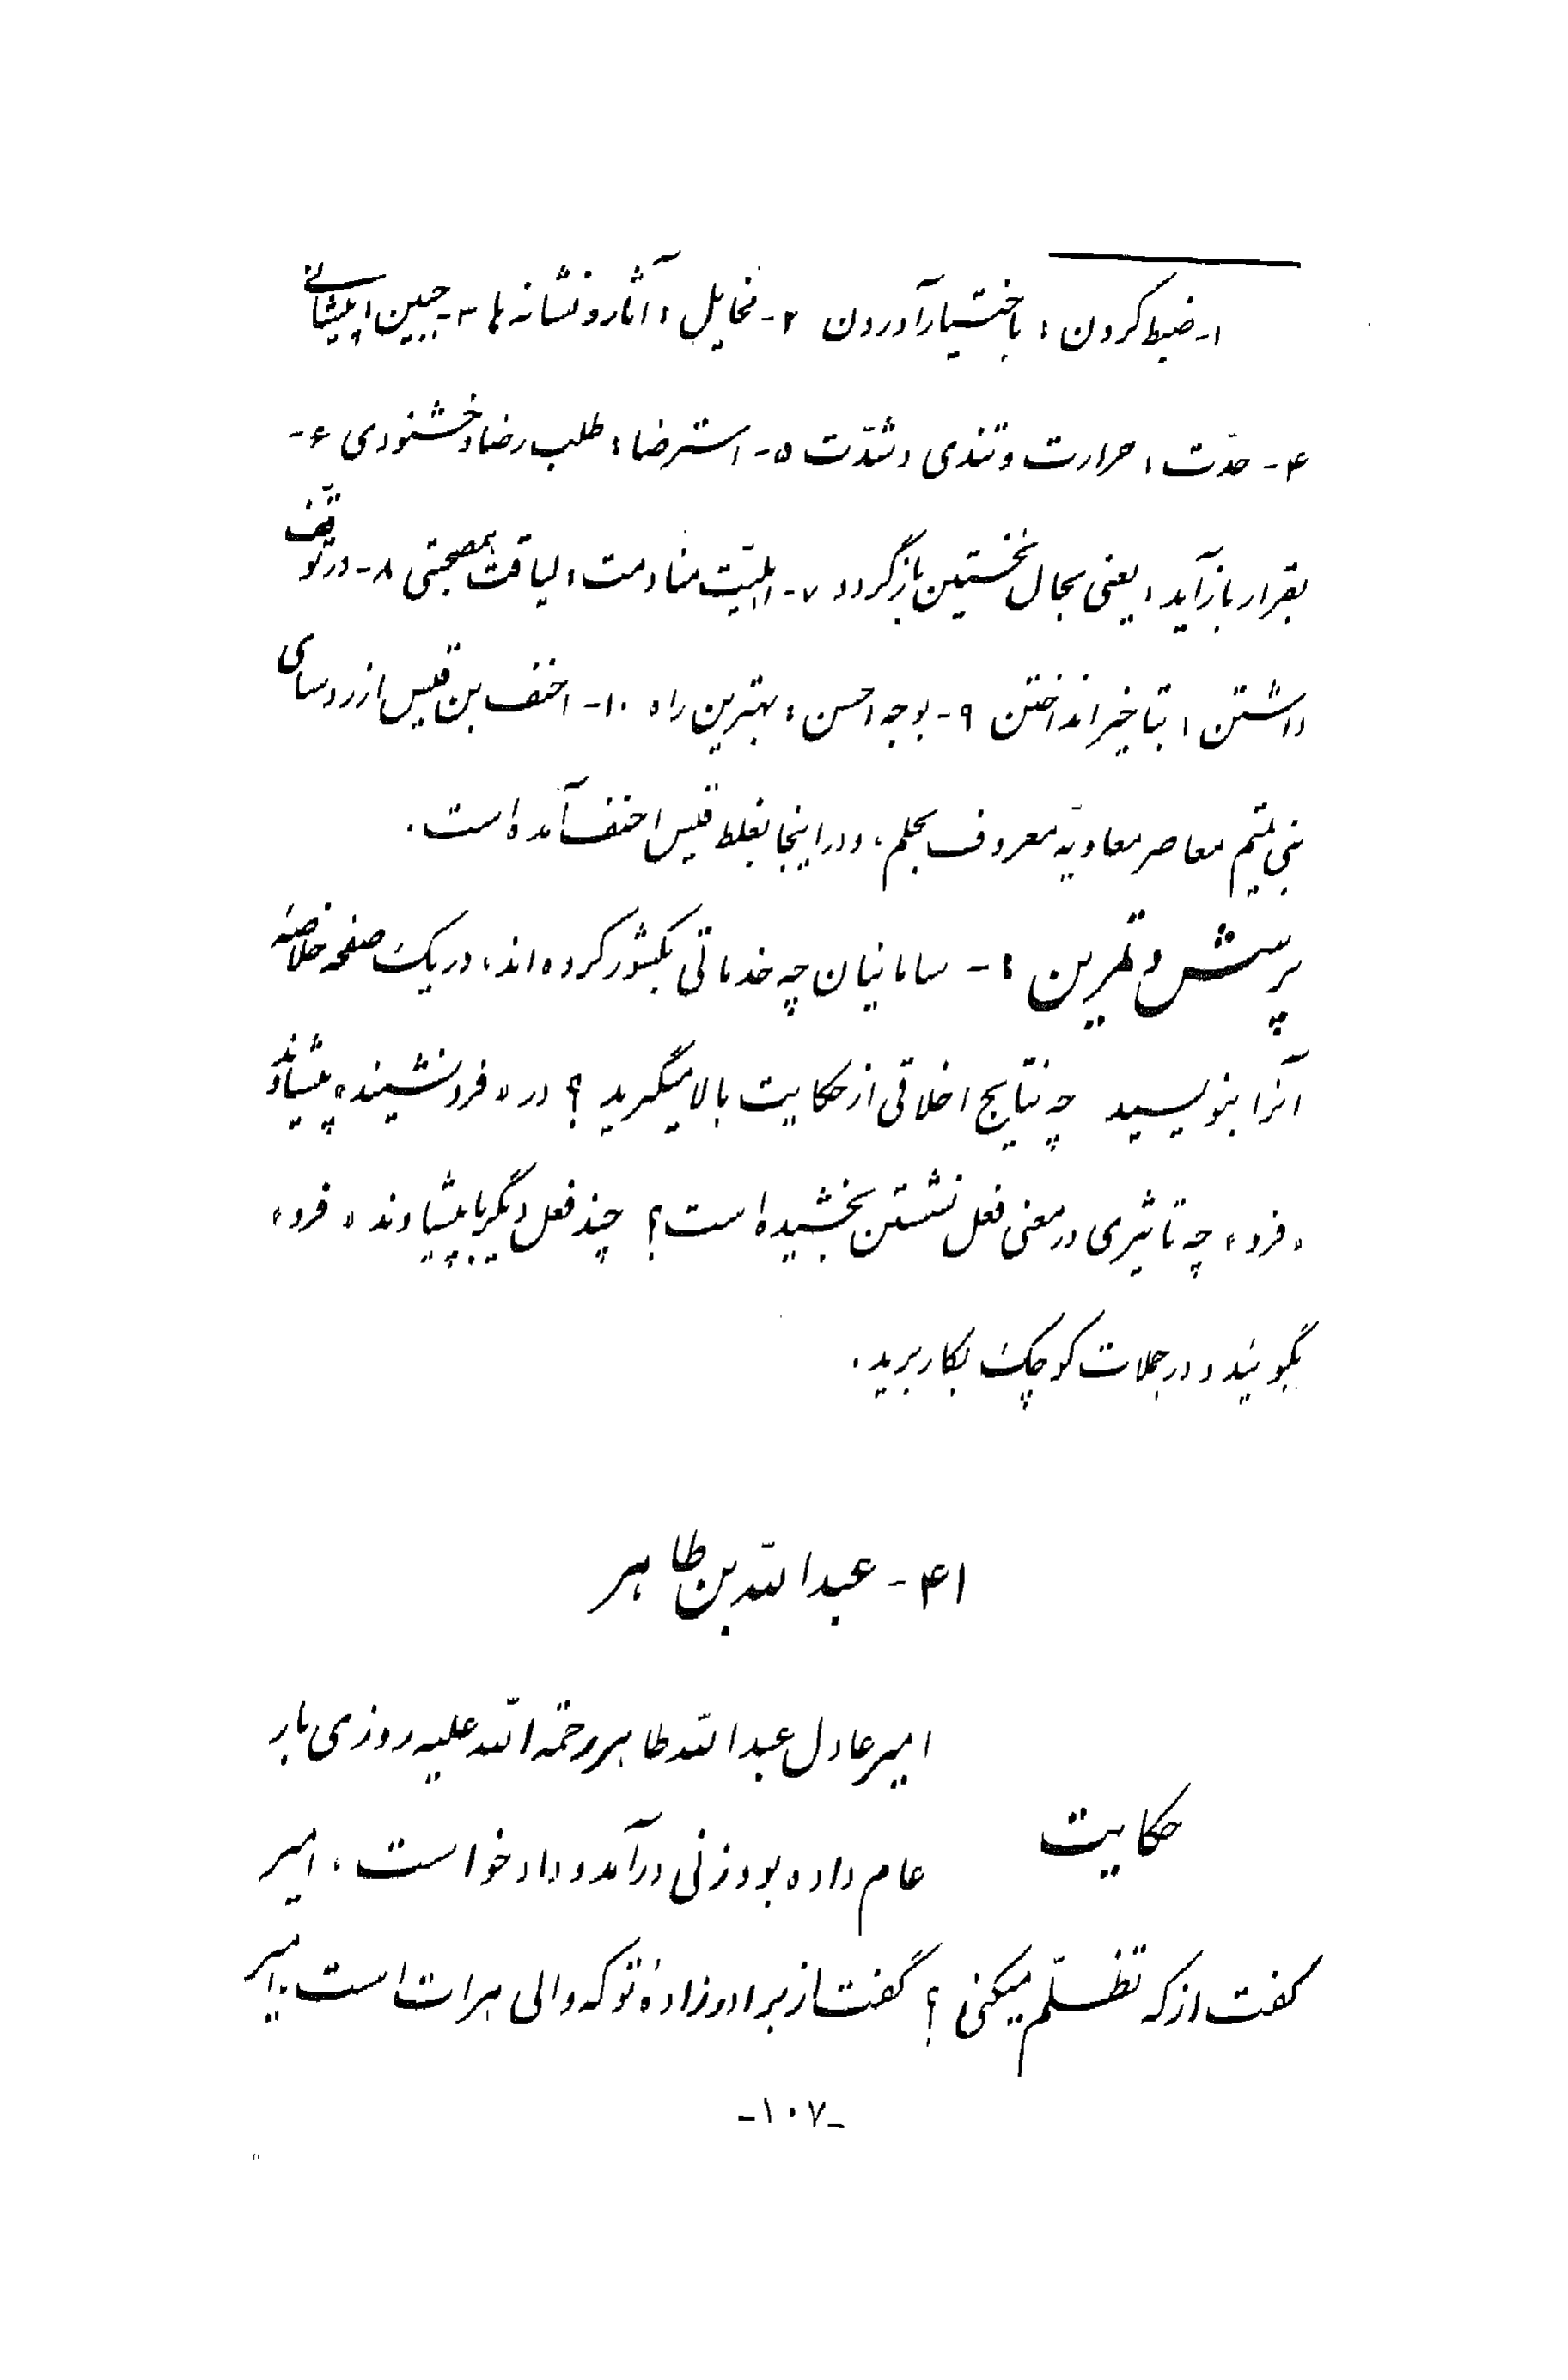 ۱- ضبط کردن : باختیار آوردن ۲- مخایل : آثار و نشانه ها ۳- جبین : پیشانی
۴- حدّت : حرارت و تندی و شدّت ۵- استرضا : طلب رضا و خشنودی ۶-
بقرار باز آید : یعنی بحال نخستین باز گردد ۷- اهلیّت منادمت : لیاقت همصحبتی ۸- در توقّف
داشتن : بتاخیر انداختن ۹- بوجه احسن : بهترین راه ۱۰- احنف بن قیس از رؤسای
بنی تمیم معاصر معاویه معروف بحلم ، و در اینجا بغلط قیس احنف آمده است .
پرسش و تمرین : - سامانیان چه خدماتی بکشور کرده اند ، در یک صفحه خلاصهٔ
آنرا بنویسید چه نتایج اخلاقی از حکایت بالا میگیرید ؟ در « فرو نشیند » پیشاوند
« فرو » چه تاثیری در معنی فعل نشستن بخشیده است ؟ چند فعل دیگر با پیشاوند « فرو »
بگوئید و در جملات کوچک بکار برید .
۴۱ - عبدالله بن طاهر
حکایت
امیر عادل عبدالله طاهر رحمة الله علیه روزی بار
عام داده بود زنی درآمد و داد خواست ، امیر
گفت از که تظلّم میکنی ؟ گفت از برادرزادهٔ تو که والی هرات است . امیر
-۱۰۷-